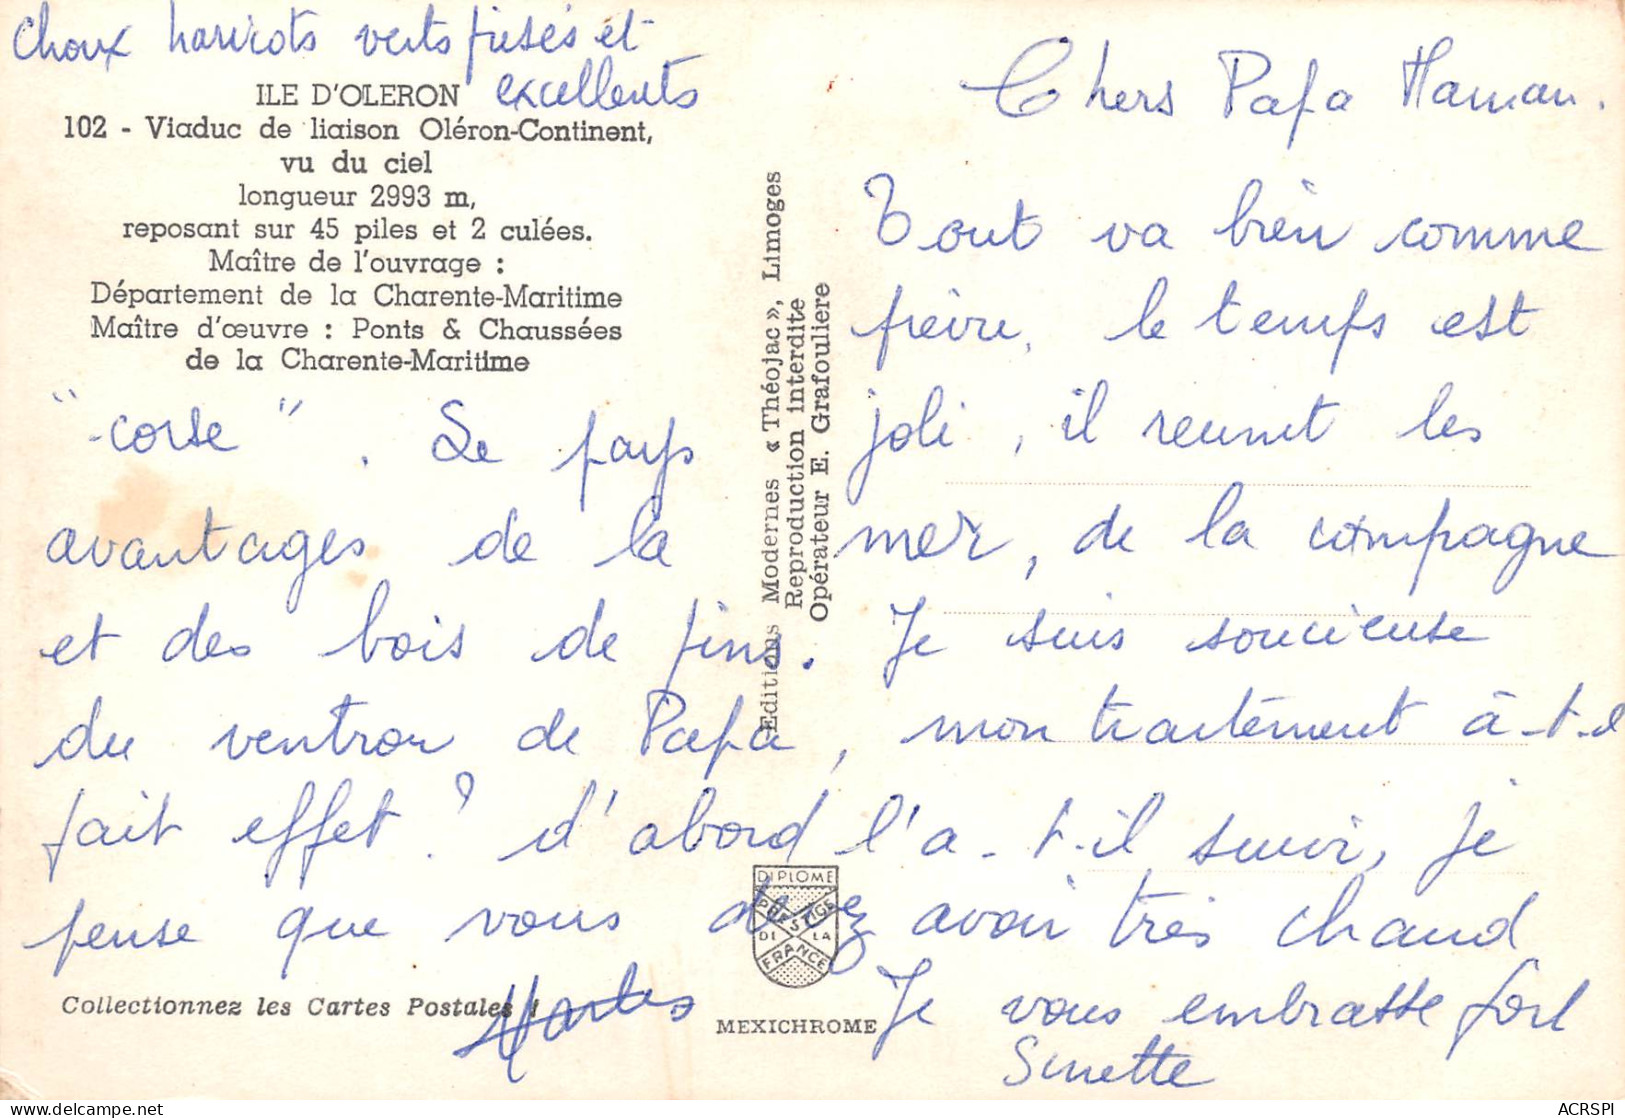 choux haricots verts frisés et
excellents
ILE D'OLERON
102 - Viaduc de liaison Oléron-Continent,
vu du ciel
longueur 2993 m,
reposant sur 45 piles et 2 culées.
Maître de l'ouvrage :
Département de la Charente-Maritime
Maître d'œuvre : Ponts & Chaussées
de la Charente-Maritime
Editions Modernes « Théojac », Limoges
Reproduction interdite
Opérateur E. Grafouliere
Chers Papa Maman.
Tout va bien comme
le temps est
joli, il reunit les
"corse". Le pays
avantages de la mer, de la campagne
et des bois de pins. Je suis soucieuse
du de Papa, mon traitement a-t-il
fait effet ? d'abord l'a-t-il suivi, je
pense que vous devez avoir très chaud
Je vous embrasse fort
DIPLOME
PRESTIGE
DE LA
FRANCE
Collectionnez les Cartes Postales !
MEXICHROME
ACRSPI